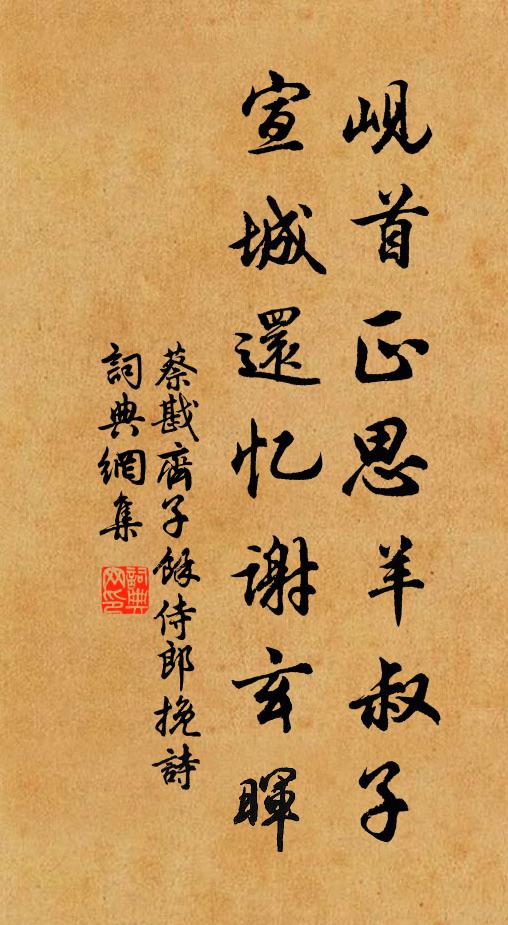 峴首正思羊叔子
宣城還忆謝玄暉
蔡戡齊子餘侍郎挽詩
詞典網集
詞典
网印